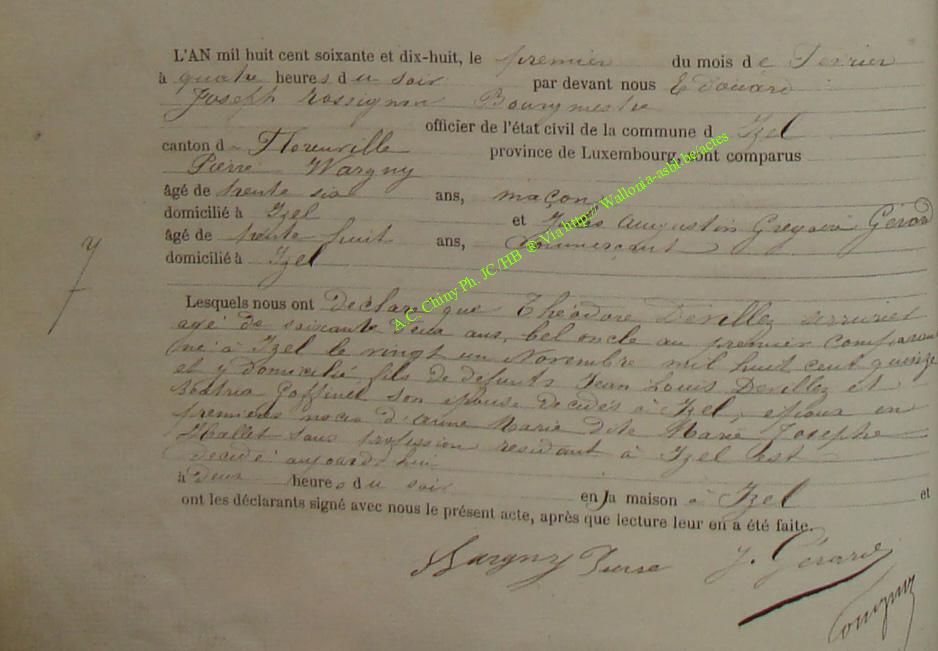 L'AN mil huit cent soixante et dix-huit, le premier du mois de Fevrier
à quatre heures du soir par devant nous Edouard
Joseph Rossignon Bourgmestre
officier de l'état civil de la commune d Izel
canton de Florenville province de Luxembourg sont comparus
Pierre Wargny
âgé de trente six ans, maçon
domicilié à Izel et Augustin Gregoire Gérard
âgé de trente huit ans, Commerçant
domicilié à Izel
7
Lesquels nous ont déclaré que Théodore Devillez serrurier
agé de soixante deux ans, bel oncle au premier comparant
né à Izel le vingt un Novembre mil huit cent quinze
et y domicilié, fils de defunts Jean Louis Devillez et
Goffinet son epouse décidés à Izel, epoux en
premieres noces d'Anne Marie dite Marie Josephe
Hallet sans profession residant à Izel est
décidé aujourd'hui
à deux heures du soir en sa maison à Izel et
ont les déclarants signé avec nous le présent acte, après que lecture leur en a été faite.
Wargny Pierre J. Gérard
A.C. Chiny Ph. JC /HB @ Via http:// Wallonia-asbl.be/actes